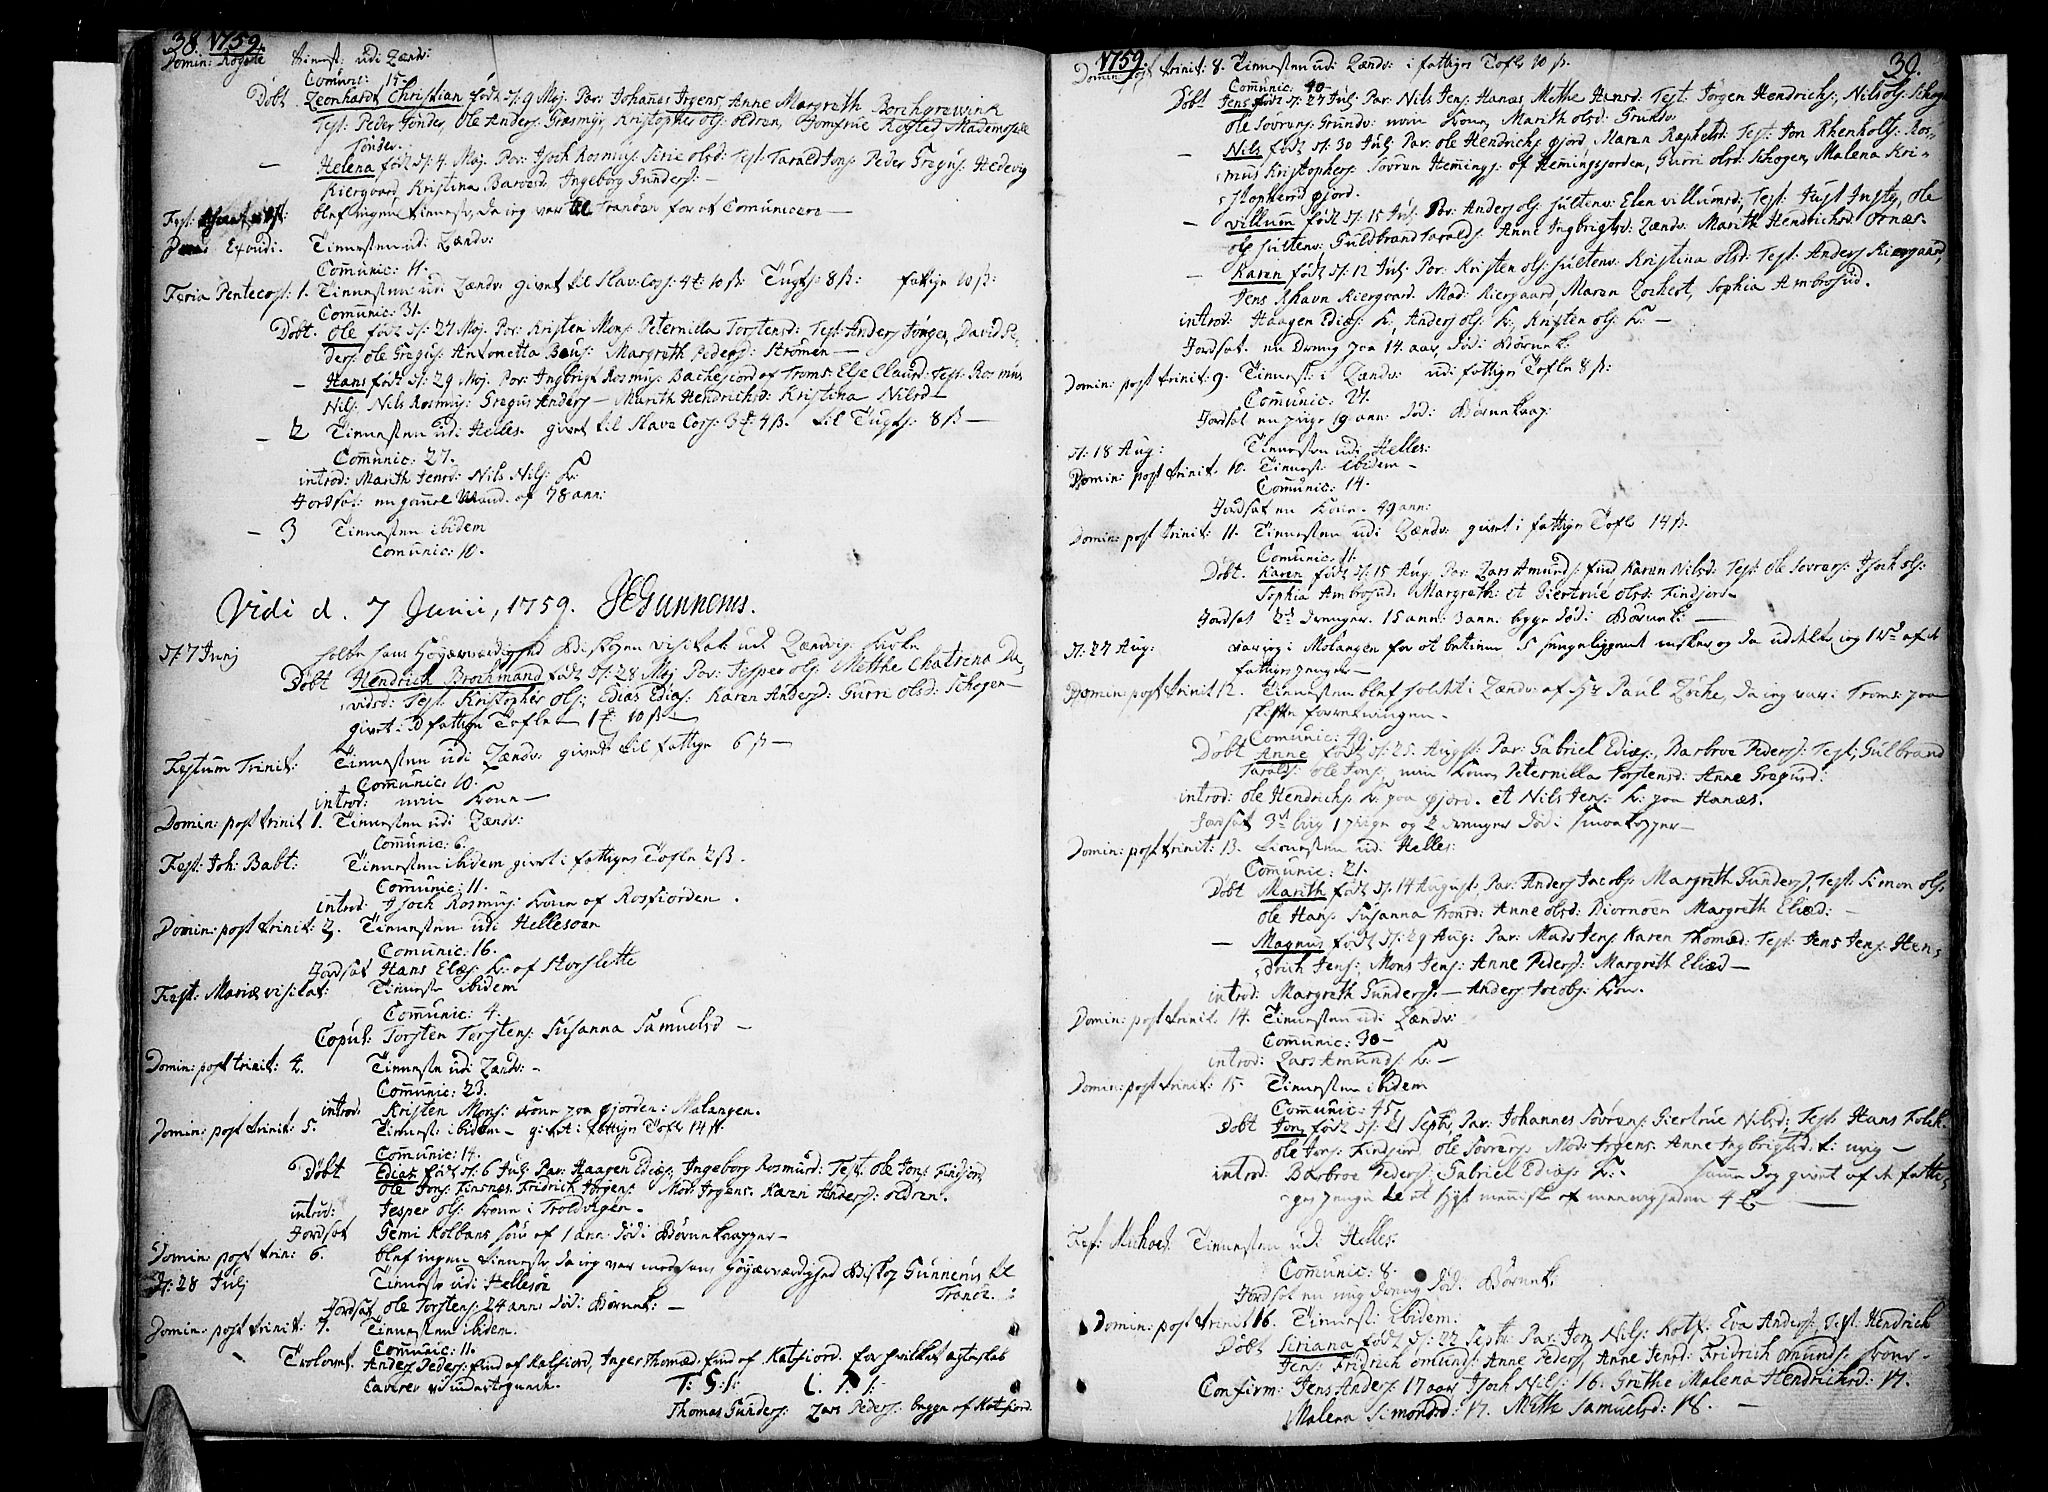 38. 1759.
Domin: Rogate Tienest udi Lændv:
Comunic: 15.
Døbt Leonhardt Christian født d: 9 Maj. Par: Johanes Irgens, Anne Margreth Borchgrewink
Test: Peder Tønder, Ole Anders: Græsmÿr, Kristopher ols: oldren, Jomfrue Rogsted Mademoselle
Tønder.
— Helena født d: 4. Maj. Par: Isach Rasmus: Sirie olsd: Test: Tarald Jons: Peder Gregus: Hedevig
Kiergaard, Kristina Ingeborg Gunders: —
Fest: blef ingen tieneste, da ieg var til Tranöen for at Comunicere —
Exaudi. Tienesten udi Lændv:
Comunic: 11.
Feria Pentecost: 1. Tienesten udi Lændv: givet til Slav: Cass: 10 ß: Tugts: 8 ß: fattige 10 ß:
Comunic: 31.
Døbt. Ole født d: 27 Maj. Par: Kristen Mons: Peternilla Torstensd: Test: Anders David Pe,
ders: Ole Gregus: Antonetta Margreth Peders: Strömen —
— Hans født d: 29 Maj. Par: Ingbrigt Rasmus: Bachejord af Troms: Else Clausd: Test: Rasmus
Nils: Nils Rasmus: Gregus Anders — Marith Hendrichsd: Kristina Nilsd —
— 2 Tienesten udi Helles. givet til Slave Cass: 4 ß. til Tugts: 8 ß —
Comunic: 27.
introd: Marith Jensd: Nils Nils: K:
Jordfæst: en gamel Mand. af 78 ann:
— 3 Tienesten ibidem
Comunic: 10.
Vidi d. 7 Junii, 1759. JEGunnerus.
d: 7 Junj holte hans Höyærværdighed Biskopen visitatz udi Lændvig kirke
Døbt Hendrich Brochmand født d: 28 Maj Par: Jesper ols: Methe Chatrina Da,
vidsd: Test: Kristopher ols:, Edias Edias: Karen Andersd: Gurri olsd: Schogen —
givet i D fattige Tofle — 10 ß —
Festum Trinit: Tienesten udi Lændv: givet til fattige 6 ß —
Comunic: 10.
introd: min kone —
Domin: post trinit 1. Tienesten udi Lændv:
Comunic: 6.
Fest: Joh: Babt: Tienesten ibidem givet i fattiges Tofle 2 ß.
Comunic: 11.
introd: Isach Rasmus: kone af Rosfiorden.
Domin: post trinit: 2. Tienesten udi Hellesöen
Comunic: 16.
Jordfæst Hans Elias: K: af Storslette
Fest: Mariæ visitat: Tieneste ibidem
Comunic: 4.
Copul: Torsten Torstens: Susanna Samuelsd —
Domin: post trinit: 4. Tieneste udi Lændv: —
Comunic: 23.
introd: Kristen Mons: kone paa øjorden: Malangen.
Domin: post trinit: 5. Tienest: ibidem — givet i fattiges Tofle 14 ß.
Comunic: 14.
Døbt Edias født d: 6 Julj Par: Haagen Edias: Ingeborg Rasmusd: Test: Ole Jons: Findjord
Ole Jons: Finsnes. Fridrich Jörgens: Mad: Irgens. Karen Anders: oldren.
introd: Jesper ols: kone i Troldvigen.
Jordfæst Gemi Kolbans Søn af 1 ann: död i Börnekopper —
Domin: post trin: 6. blef ingen tieneste, da ieg var med hans Höyærværdighed Biskop Gunnerus til
Tranöe.
d: 28 Julj Tieneste udi Hellesöe
Jordfæst Ole Torstens: 24 ann: död i Börnek: —
Domin: post trinit: 7. Tienesten ibidem.
Comunic: 11.
Trolovet Anders Peders: find af Kalfiord, Inger Thomæd: find af Katfiord. for hvilket ægteskab
Caverer vi undertegnede. T: S: L. P.
Thomas Gunders: Lars Peders: begge af Katfiord.
1759. 39.
Domin post trinit: 8. Tienesten udi Lændv: i fattiges Tofle 10 ß.
Comunic: 40.
Døbt Jens født d: 27 Julj Par: Nils Jens: Hanæs Methe Hansd: Test: Jörgen Hendrichs:, Nils ols: Schog
Ole Sövrens: Grundv: min kone, Marith olsd: Grundv:
— Nils født d: 30 Julj Par: Ole Hendrichs: øjord, Maren Test: Jon Rhenholts: Ras-
mus Kristophers: Sövren Hemings: af Hemingsjorden, Gurri olsd: Schogen, Malena Kri-
stophersd øjord.
— Villum født d: 15 Julj Par: Anders ols: Sultenv: Elen Villumsd: Test: Just Justs: Ole
ols Sultenv: Guldbrand Taralds: Anne Ingbrigtsd: Lændv: Marith Hendrichsd: Fonæs.
— Karen født d: 12 Julj Par: Kristen ols: Sultenv: Kristina olsd: Test: Anders Kiergaard,
Jens Rhavn Kiergaard. Mad: Kiergaard, Maren Lochert, Sophia Ambrosiid.
introd: Haagen Edias: K:, Anders ols: K:, Kristen ols: K: —
Jordfæst. en Dreng paa 14 aar, död i Börnek:
Domin: post trinit: 9. Tienest: i Lændv: udi fattiges Tofle 8 ß:
Comunic: 27.
Jordfæst en pige 19 ann: död: Börnekop:
d: 18 Aug: Tienesten udi Helles:
Domin: post trinit. 10. Tienest: ibidem —
Comunic: 14.
Jordfæst en kone. 49 ann:
Domin: post trinit: 11. Tienesten udi Lændv: givet i fattiges Tofle 14 ß.
Comunic: 11.
Døbt. Karen født d: 15 Aug. Par: Lars Amunds: find Karen Nilsd: Test: Ole Sovrens: Isach ols:
Sophia Ambrosiid: Margreth: et Giertrue olsd: Findjord —
Jordfæst 2de drenger. 15 ann: 3 ann: begge död i Börnek: —
d: 27 Aug: var ieg i Malangen for at betiene 5 sengeliggende mensker og da uddelte ieg 1 af de
fattiges penger —
Domin post trinit 12. Tienesten blef holdt i Lændv: af Hr Paul Löche, da ieg var i Troms: paa
skifte forretningen.
Comunic: 19.
Døbt Anne født d: 25. August: Par: Gabriel Edias:, Barbroe Peders: Test: Gulbrand
Taralds: Ole Jons: min kone, Peternilla Torstensd: Anne Gregusd:
introd: Ole Hendrichs: K: paa øjord. et Nils Jens: K: paa Hanæs.
Jordfæst 3de lig 1 pige og 2 drenger död i smaakopper —
Domin: post trinit: 13. Tienesten udi Helles:
Comunic: 21.
Døbt Marith født d: 14 August: Par: Anders Jacobs: Margreth Gunders: Test: Simon ols:
Ole Hans: Susanna Tronsd: Anne olsd: Biornöen Margreth Eliæd: —
— Magnus født d: 29 Aug: Par: Mads Jens: Karen Thomæd: Test: Jens Jens: Hen,
drich Jens:, Mons Jens: Anne Peders: Margreth Eliæd —
introd: Margreth Gunders: — Anders Jacobs: kone.
Domin: post trinit: 14. Tienesten udi Lændv:
Comunic: 30 —
introd: Lars Amunds: K: —
Domin: post trinit: 15. Tienesten ibidem
Comunic: 45
Døbt Jon, født d: 21 Septbr. Par: Johannes Sövrens: Giertrue Nilsd: Test: Hans Falch
Ole Jons: Findjord, Ole Sovrens: Mad: Irgens. Anne Ingbrigtsd: t: mig —
introd: Barbroe Peders: Gabriel Edias: K:. Same Dag givet af de fatti,
ges penge til et Sygt menniske af 4 —
Fest: Michael. Tienesten udi Helles:
Comunic: 8.
Jordfæst en ung dreng död i Börnek:
Domin: post trinit 16. Tienest: ibidem.
Døbt Siriana født d: 22 Septbr: Par: Jon Nils: Katf: Eva Anders: Test: Hendrich
Jens: Fridrich Omunds: Anne Peders, Anne Jensd: Fridrich Omunds: kone —
Confirm: Jens Anders: 17 aar, Isach Nils: 16. Grethe Malena Hendrichsd: 17.
Malena Simonsd: 17. Methe Samuelsd: 18. —